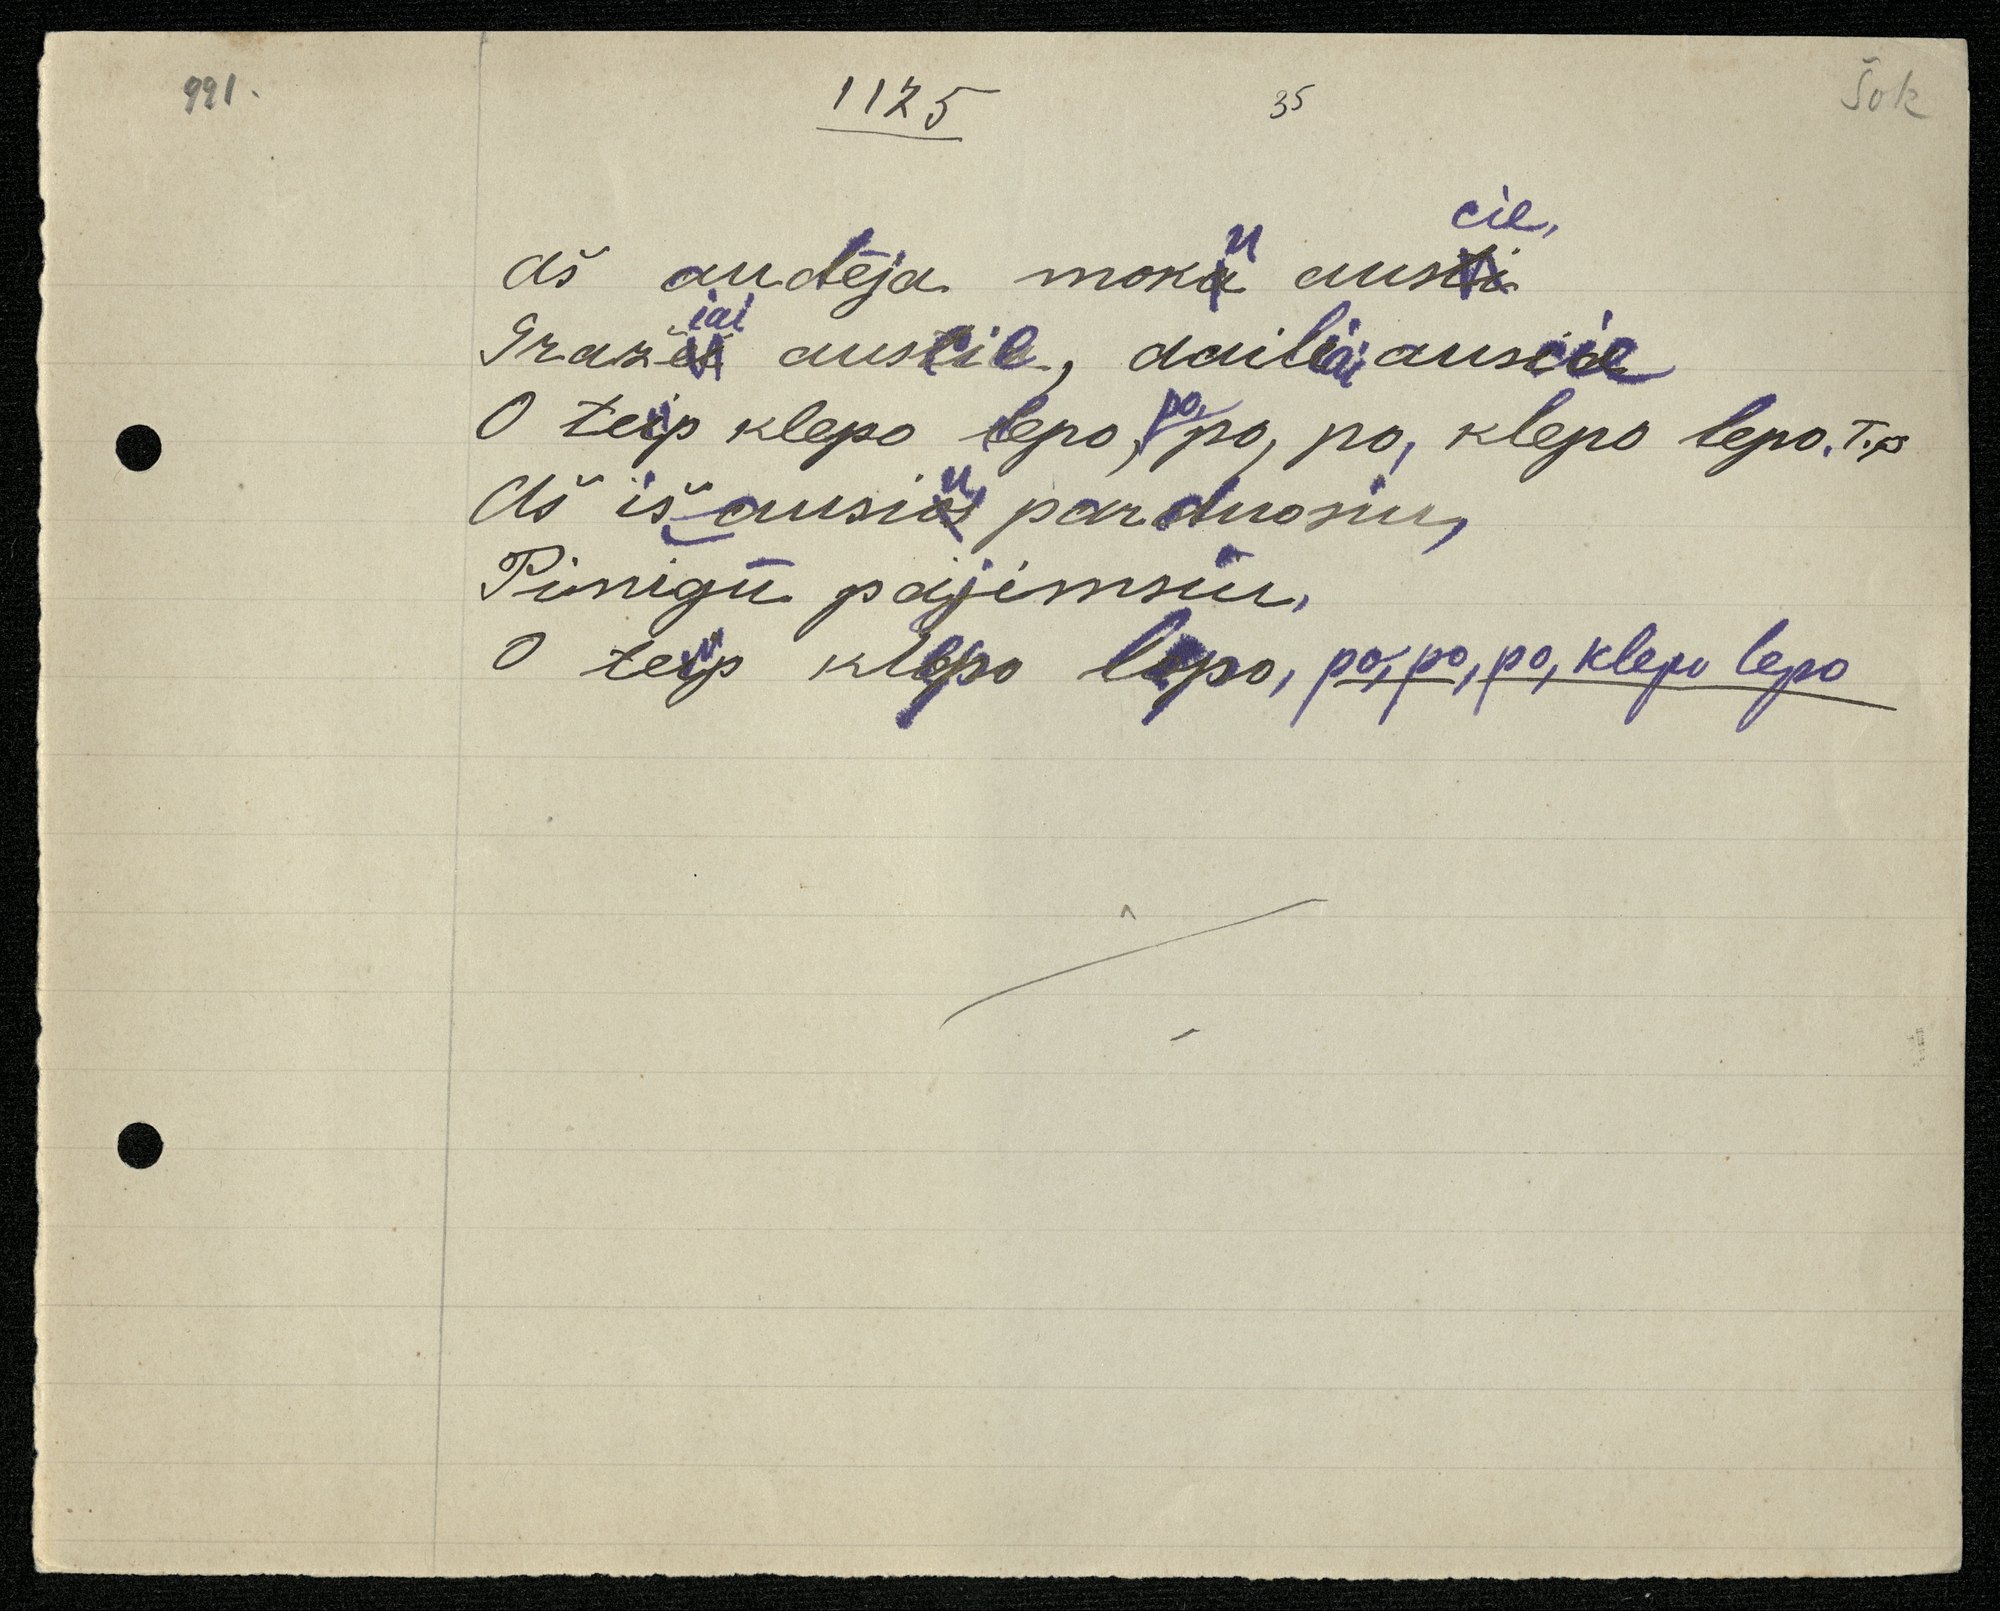 991.
1125
35
Šok
Aš audėja moku auscie,
Gražiai auscie, dailiai auscie
O teip klepo lepo, po, po, po, klepo lepo. T.p
Aš išausiu parduosiu,
Pinigų pajimsiu,
O teip klepo lepo, po, po, po, klepo lepo